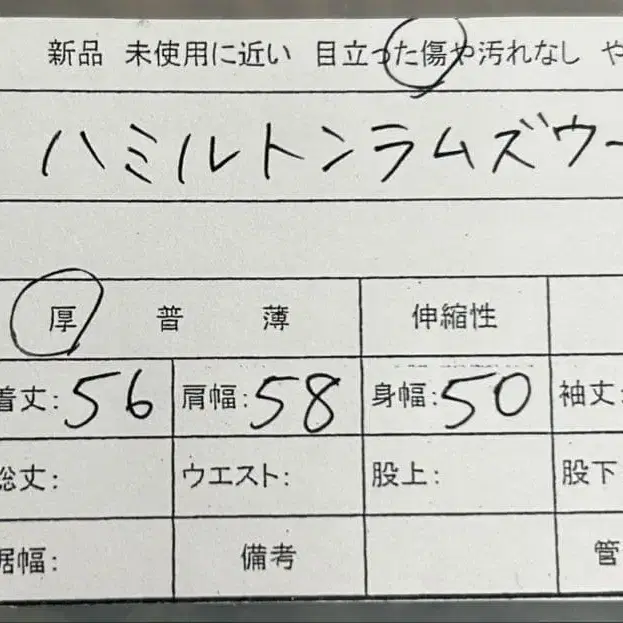 新品 未使用に近い 目立った傷や汚れなし や
ハミルトンラムズウー
厚 普 薄 伸縮性
着丈:56 肩幅:58 身幅:50 袖丈:
総丈: ウエスト: 股上: 股下
裾幅: 備考 管